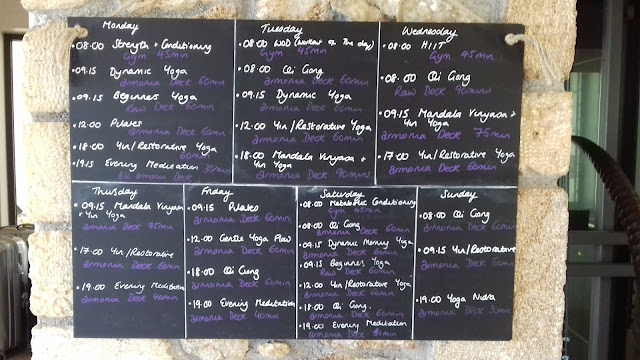 Monday
• 08:00 Strength + Conditioning
Gym 45min
• 09.15 Dynamic Yoga
armonia Deck 60min
• 09.15 Beginners Yoga
Raw Deck 60min
• 12.00 Pilates
armonia Deck 60min
• 18.00 Yin/Restorative Yoga
60min
• 19.15 Evening Meditation
armonia Deck
Tuesday
• 08:00 WOD (Workout of the day)
Gym 45min
• 08.00 Qi Gong
armonia Deck 60min
• 09.15 Dynamic Yoga
armonia Deck 60min
• 12.00 Yin/Restorative Yoga
armonia Deck 60min
• 18.00 Mandala Vinyasa +
Yin Yoga
armonia Deck 90min
Wednesday
• 08:00 HIIT
Gym 45min
• 08.00 Qi Gong
Raw Deck 90min
• 09.15 Mandala Vinyasa +
Yin Yoga
armonia Deck 75min
• 17.00 Yin/Restorative Yoga
armonia Deck 60min
Thursday
• 09.15 Mandala Vinyasa
+ Yin Yoga
armonia Deck 75min
• 17.00 Yin/Restorative
armonia Deck 60min
• 19.00 Evening Meditation
armonia Deck 40min
Friday
• 09.15 Pilates
armonia Deck 60min
• 12.00 Gentle Yoga Flow
armonia Deck 60min
• 18.00 Qi Gong
armonia Deck 60min
• 19.00 Evening Meditation
armonia Deck 40min
Saturday
• 08.00 Metabolic Conditioning
Gym 45min
• 08.00 Qi Gong
armonia Deck 60min
• 09.15 Dynamic Yoga
armonia Deck 60min
• 09.15 Beginner Yoga
Raw Deck 60min
• 12.00 Yin/Restorative Yoga
armonia Deck 60min
• 18.00 Qi Gong
armonia Deck 60min
• 19.00 Evening Meditation
armonia Deck
Sunday
• 08.00 Qi Gong
armonia Deck 60min
• 09.15 Yin/Restorative
armonia Deck 60min
• 19.00 Yoga Nidra
armonia Deck 30min